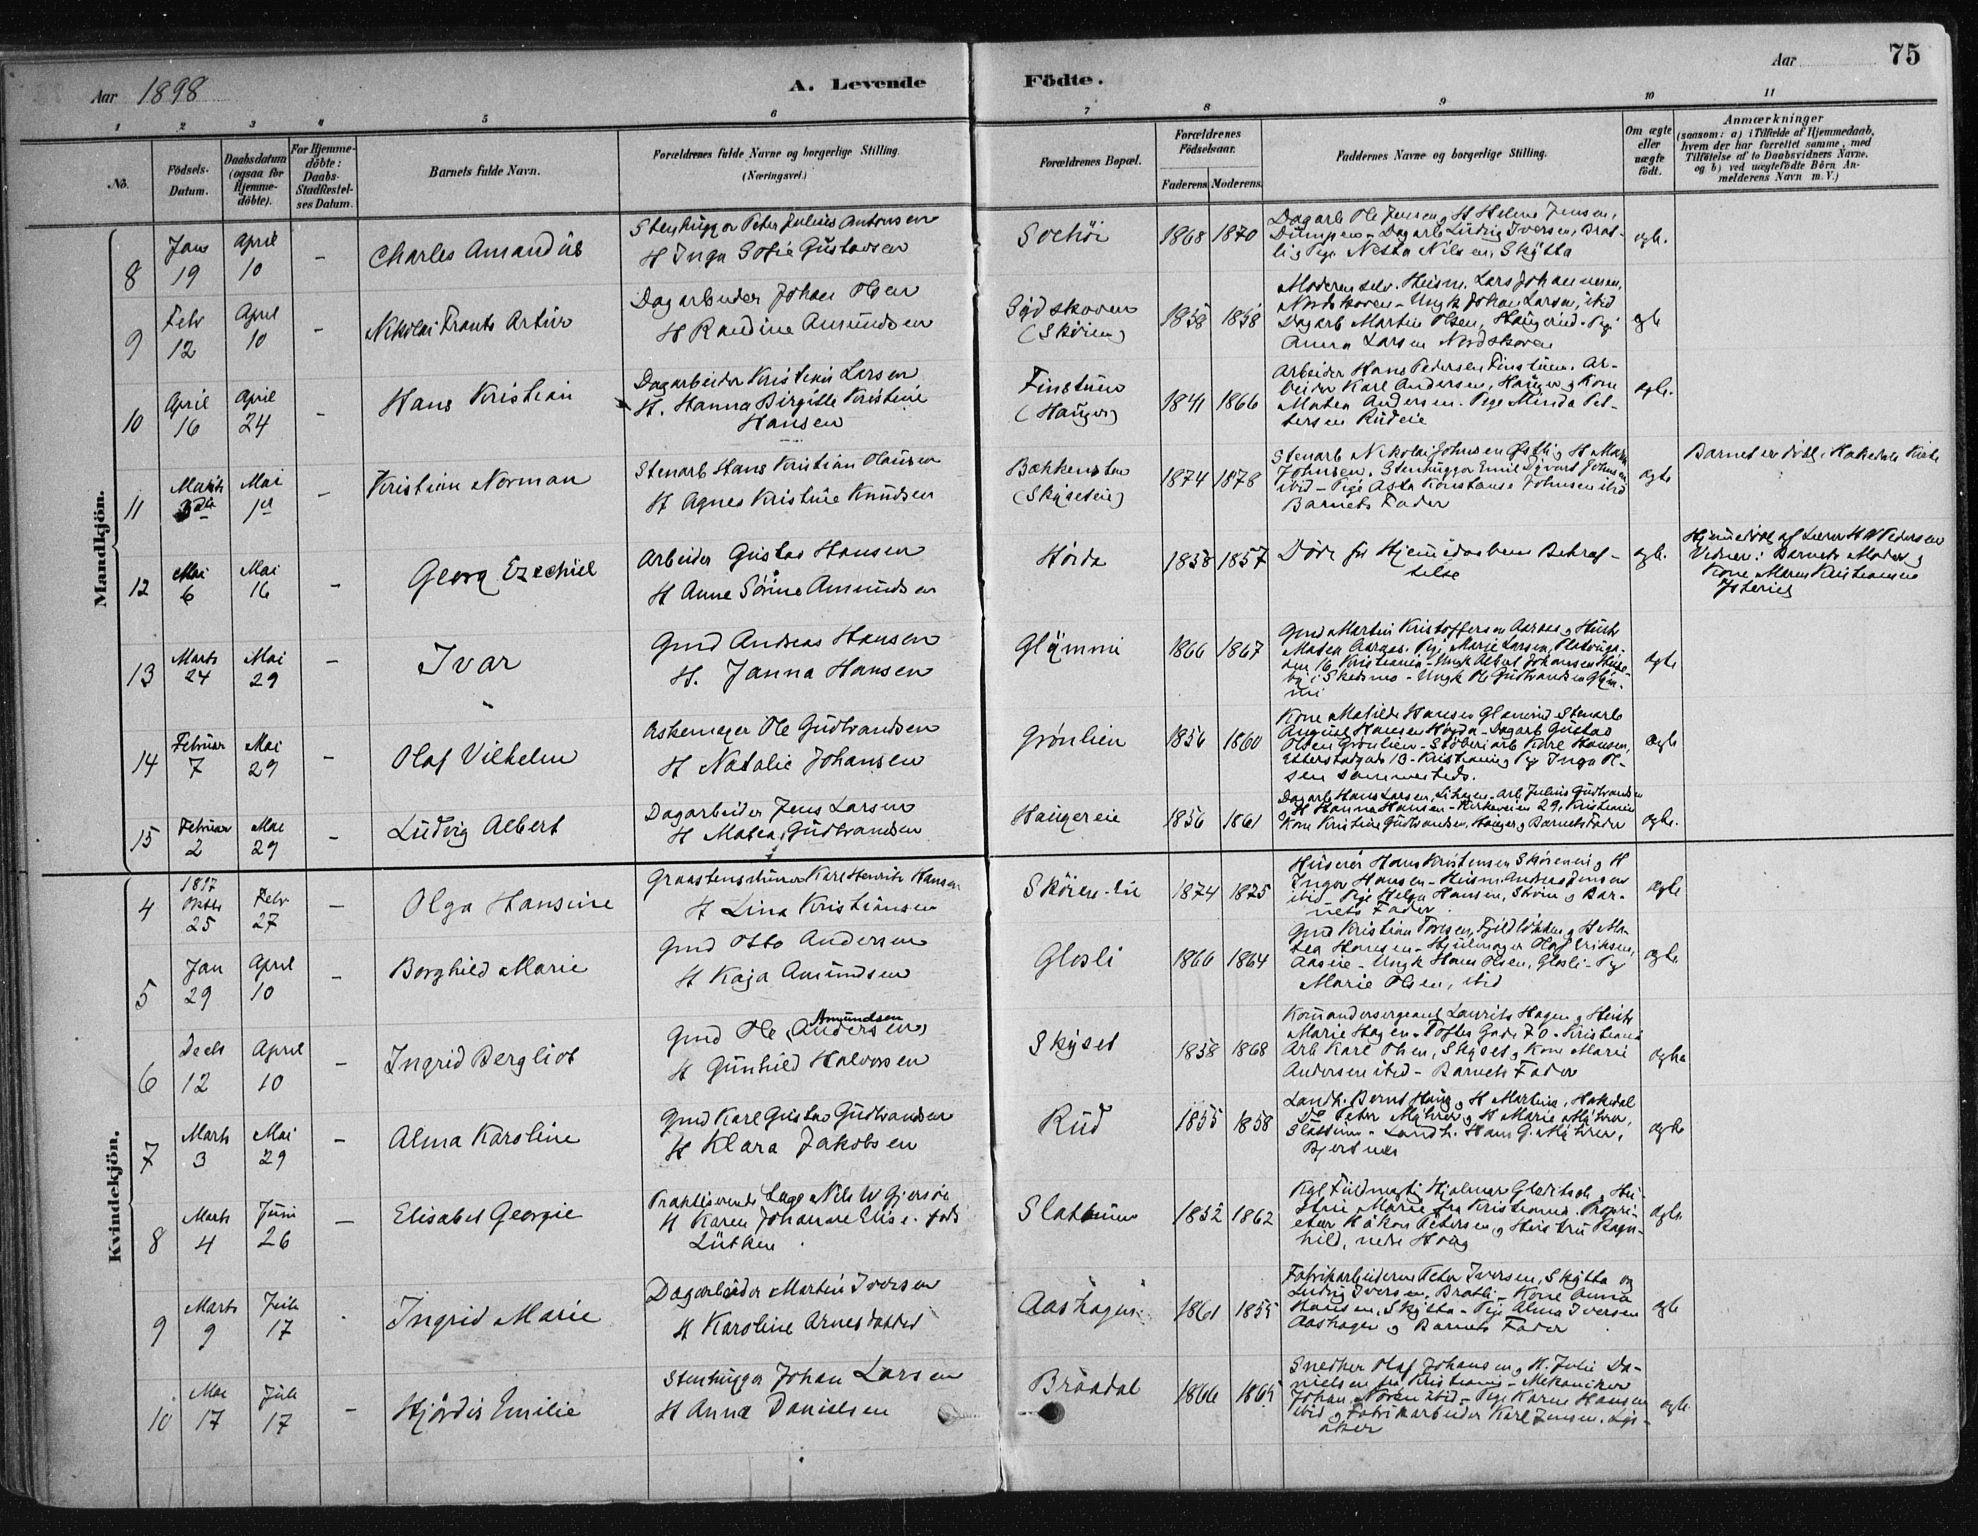 Aar 1898
A. Levende Födte.
Aar
75
1 2 3 4 5 6 7 8 9 10 11
No.
Födsels-Datum.
Daabsdatum (ogsaa for Hjemme-döbte).
For Hjemme-döbte: Daabs-Stadfæstel-ses Datum.
Barnets fulde Navn.
Forældrenes fulde Navne og borgerlige Stilling. (Næringsvei.)
Forældrenes Bopæl.
Forældrenes Födselsaar.
Faderens Moderens
Faddernes Navne og borgerlige Stilling.
Om ægte eller uægte födt.
Anmærkninger
(saasom: a) i Tilfælde af Hjemmedaab, hvem der har forrettet samme, med Tilföielse af to Daabsvidners Navne, og b) ved uægtefödte Börn An-melderens Navn m. V.)
Mandkjön.
8 Jan 19 April 10 - Charles Amandus
Stenhugger Peter Julius Antonsen
H Inga Sofie Gustavsen
1868 1870
Dagarb Ole Jensen, H Helene Jensen,
Dagarb Ludvig Iversen, Brat-
li, Pige Skytta
ægte.
9 Feb 12 April 10 - Nikolai Frants Artur
Dagarbeider Johan Olsen
H Randine Amundsen
Sydskoven (Skøien)
1858 1858
Moderen selv. Husm. Lars Johannesen,
Nordskoven - Ungk Johan Larsen, ibid
Dagarb Martin Olsen, Haugerud - Pige
Anna Larsen Nordskoven
ægte
10 April 16 April 24 - Hans Kristian
Dagarbeider Kristian Larsen
H. Hanna Birgitte Kristine
Hansen
Finstuen (Hauger)
1841 1866
Arbeider Hans Pedersen Finstuen. Ar-
beider Karl Andersen, Hauger, Kone
Matea Andersen. Pige Minda Pet-
tersen Rudeie
ægte.
11 Marts Mai 1ste - Kristian Norman
Stenarb Hans Kristian Hansen
H Agnes Kristine Knudsen
Bækkenstua (Skyseteie)
1874 1878
Stenarb Nikolai Johnsen H
Johnsen. Stenhugger Emil Johnsen
ibid - Pige Asta Konstanse Johnsen ibid
Barnets Fader
ægte
Barnet er døbt i Hakedals Kirke
12 Mai 6 Mai 16 - Georg Ezechiel
Arbeider Gustav Hansen
H Anne Sørine Amundsen
1858 1857
Døde før Hjemmedaabens Bekræf-
telse
ægte.
Hjemmedøbt af Lærer H Pedersen
Vidner: Barnets Moder og
Kone Maren Kristiansen
13 Marts 24 Mai 29 - Ivar
Gmd Andreas Hansen
H. Janna Hansen
Glømmi
1866 1867
Gmd Martin Kristoffersen Aarnes, Hustr
Matea Aarnes. Pige Marie Larsen,
16 Kristiania - Ungk Albert Johansen
i Skedsmo - Ungk Ole Gudbrandsen Gløm-
mi
ægte
14 Februar 7 Mai 29 - Olaf Vilhelm
Ole Gudbrandsen
H Natalie Johansen
Grønlien
1856 1860
Kone Matilde Hansen Stenarb
August Hansen Høyda - Dagarb Gustav
Olsen Grønlien - Støberiarb Karl Hansen,
Etterstadgade 13 - Kristiania, Pige Inga Ol-
sen sammesteds.
ægte
15 Februar 2 Mai 29 - Ludvig Albert
Dagarbeider Jens Larsen
H Matea Gudbrandsen
Haugereie
1856 1861
Dagarb Hans Larsen, - Arb Julius Gudbrandsen
H Hanna Hansen - Kirkeveien 29. Kristiania
Kone Kristine Gudbrandsen, Hauger, Barnets Fader
ægte.
Kvindekjön.
4 1897 Oktbr 25 Febr 27 - Olga Hansine
Karl Henrik Hansen
H Lina Kristiansen
Skøien-eie
1874 1875
Hans Kristensen Skøieneie, H
Inger Hansen - Husm Andreas Jensen
ibid - Pige Helga Hansen, Skøien, Bar-
nets Fader.
ægte
5 Jan 29 April 10 - Borghild Marie
Gmd Otto Andersen
H Kaja Amundsen
Glosli
1860 1864
Gmd Kristian Fjeldløkken, H Ma-
tea Hansen - Hjulmager Olaf Eriksen,
Aaseie - Ungk Hans Olsen, Glosli - Pige
Marie Olsen, ibid
ægte.
6 Decb 12 April 10 - Ingrid Bergliot
Amundsen
Gmd Ole (Andersen)
H Gunhild Halvorsen
Skyset
1858 1868
Kommandersergeant Laurits Hagen, Hustr
Marie Hagen - Toftes Gade 70 - Kristiania
Arb Karl Olsen, Skyset, Kone Marie
Andersen ibid - Barnets Fader
ægte
7 Marts 3 Mai 29 - Alma Karoline
Gmd Karl Gustav Gudbrandsen
H Klara Jakobsen
Rud
1855 1858
Landh. Bernt Haug, H Martine, Hakedal
Do Peter Myhrer, H Marie Myhrer,
Slattum - Landh. Hans G. Myhrer,
Bjertnes
ægte
8 Marts 4 Juni 26 - Elisabet Georgie
Praktiserende Læge Nils W Gjersøe
H Karen Johanne Elise, født
Lütken.
Slattum
1852 1862
Kgl Fuldmægtig Hjalmar Gleditsch, Hu-
stru Marie fra Kristiania. Propri-
etær Håkon Petersen, Hustru Ragn-
hild,
ægte.
9 Marts 9 Juli 17 - Ingrid Marie
Dagarbeider Martin Iversen
H Karoline Arnesdatter
Aashagen
1861 1855
Fabrikarbeiderne Peter Iversen, Skytta og
Ludvig Iversen, Bratli - Kone Anna
Hansen, Skytta - Pige Alma Iversen
Aashagen, Barnets Fader
ægte
10 Mai 17 Juli 17 - Hjørdis Emilie
Stenhugger Johan Larsen
H Anna Danielsen
Brådal
1866 1865
Snedker Olaf Johansen, H. Julie Da-
nielsen fra Kristiania - Mekaniker
Johan Noren ibid - Pige Karen Hansen
ibid, Fabrikarbeider Karl Jensen. Lys-
aker
ægte.